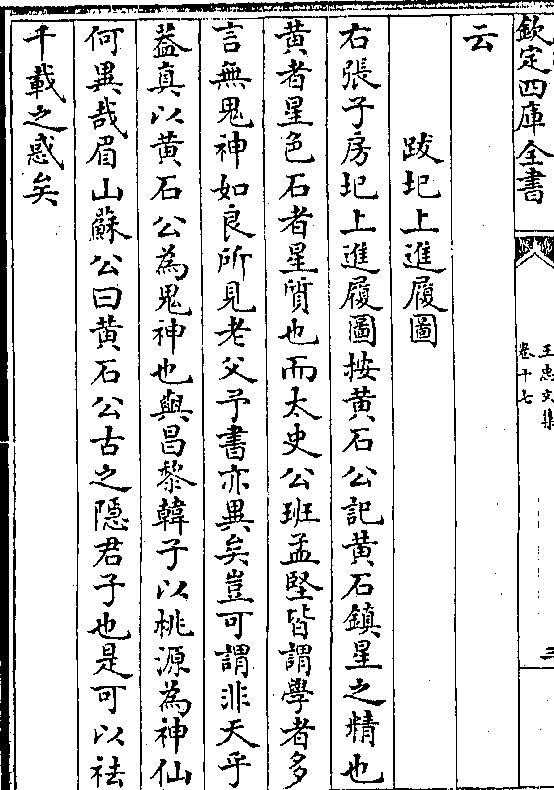 欽定四庫全書
王忠文集
卷十七
三
云
跋圯上進履圖
右張子房圯上進履圖按黄石公記黄石鎮星之精也
黄者星色石者星質也而太史公班孟堅皆謂學者多
言無鬼神如良所見老父予書亦異矣豈可謂非天乎
葢真以黄石公為鬼神也與昌黎韓子以桃源為神仙
何異哉眉山蘇公曰黄石公古之隠君子也是可以祛
千載之惑矣